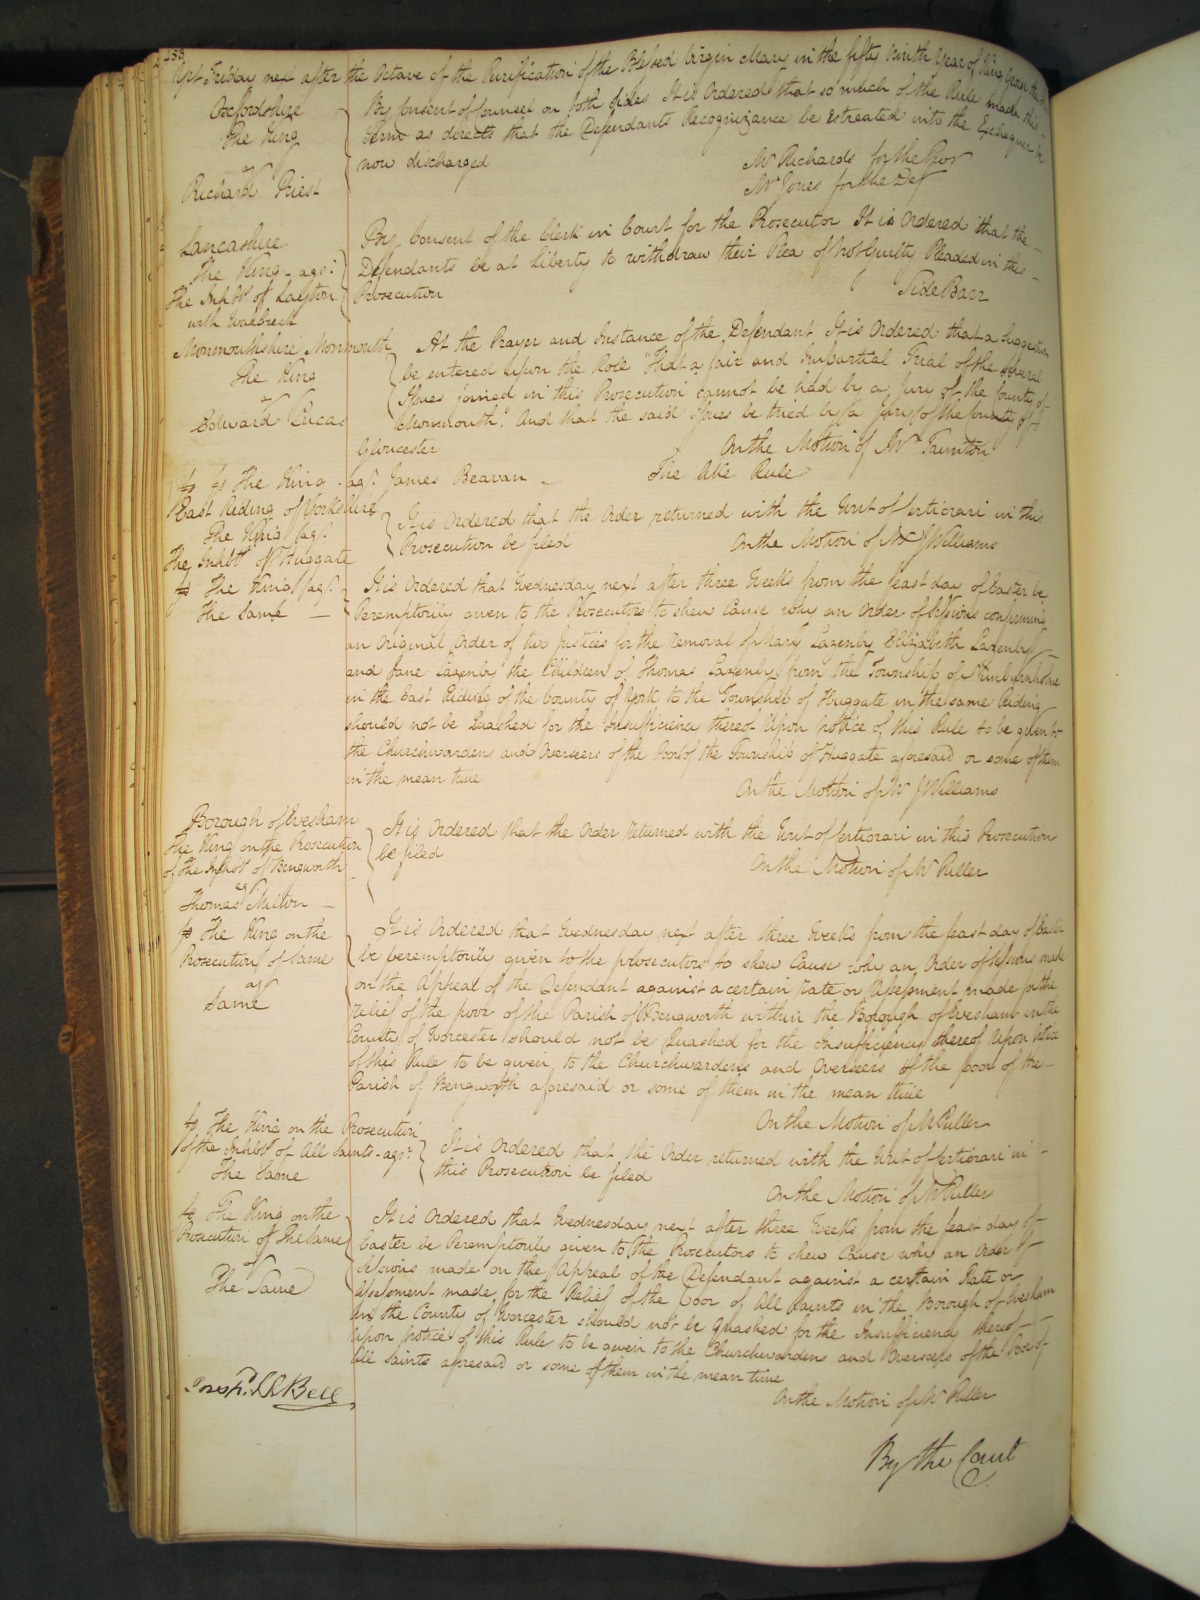 158
Yet Friday next after the Octave of the Purification of the Blessed Virgin Mary in the fifty ninth Year of King George the
Oxfordshire
The King
agt
Richard Priest
By Consent of Counsel on both sides It is Ordered that so much of the Rule made this
Term as directs that the Defendants Recognizance be estreated into the Exchequer be
now discharged
Mr Richards for the Pror
Mr Jones for the Def
Lancashire
The King - agst
The Inhbts of Layton
with Warbreck
By Consent of the Clerk in Court for the Prosecutor It is Ordered that the
Defendants be at Liberty to withdraw their Plea of Not Guilty Pleaded in this
Prosecution
Side Barr
Monmouthshire Monmouth
The King
agt
Edward Lucas
At the Prayer and Instance of the Defendant It is Ordered that a Suggestion
be entered upon the Role "That a fair and Impartial Trial of the several
Issues joined in this Prosecution cannot be had by a Jury of the County of
Monmouth" And that the said Issues be tried by a Jury of the County of
Gloucester
On the Motion of Mr Taunton
The King agst James Beavan
The like Rule
East Riding of Yorkshire
The King agst
The Inhbts of Huggate
It is Ordered that the Order returned with the Writ of Certiorari in this
Prosecution be filed
On the Motion of Mr J Williams
The King agst
The Same
It is Ordered that Wednesday next after three Weeks from the feast day of Easter be
Peremptorily given to the Prosecutors to shew Cause why an Order of Sessions confirming
an Original Order of two Justices for the removal of Mary Laxenby Elizabeth Laxenby
and Jane Laxenby the Children of Thomas Laxenby from the Township of
in the East Riding of the County of York to the Township of Huggate in the same Riding
should not be Quashed for the Insufficiency thereof Upon Notice of this Rule to be given to
the Churchwardens and Overseers of the Poor of the Township of Huggate aforesaid or some of them
in the mean time
On the Motion of Mr J Williams
Borough of Evesham
The King on the Prosecution
of the Inhbts of Bengworth
agt
Thomas Milton
It is Ordered that the Order returned with the Writ of Certiorari in this Prosecution
be filed
On the Motion of Mr Puller
The King on the
Prosecution of Same
agt
Same
It is Ordered that Wednesday next after three Weeks from the feast day of Easter
be peremptorily given to the prosecutors to shew Cause why an Order of Sessions made
on the Appeal of the Defendant against a certain Rate or Assessment made for the
relief of the poor of the Parish of Bengworth within the Borough of Evesham in the
County of Worcester should not be Quashed for the Insufficiency thereof Upon Notice
of this Rule to be given to the Churchwardens and Overseers of the poor of the
Parish of Bengworth aforesaid or some of them in the mean time
On the Motion of Mr Puller
The King on the Prosecution
of the Inhbts of All Saints - agst
The Same
It is Ordered that the Order returned with the Writ of Certiorari in
this Prosecution be filed
On the Motion of Mr Puller
The King on the
Prosecution of The Same
agt
The Same
It is Ordered that Wednesday next after three Weeks from the feast day of
Easter be Peremptorily given to the Prosecutors to shew Cause why an Order of
Sessions made on the Appeal of the Defendant against a certain Rate or
Assessment made for the Relief of the Poor of All Saints in the Borough of Evesham
in the County of Worcester should not be Quashed for the Insufficiency thereof
Upon Notice of this Rule to be given to the Churchwardens and Overseers of the Poor of
All Saints aforesaid or some of them in the mean time
On the Motion of Mr Puller
Bell
By the Court